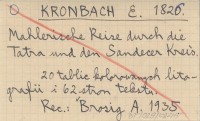 KRONBACH E. 1826.
Mahlerische Reise durch die
Tatra und den Sandecer Kreis.
20 tablic kolorowanych lito-
grafii i 62 stron tekstu.
Rec.: Brosig A. 1935